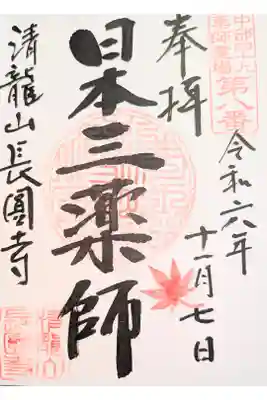 薬師霊場
第八番
奉拝
令和六年
十一月七日
日本三薬師
清龍山長圓寺